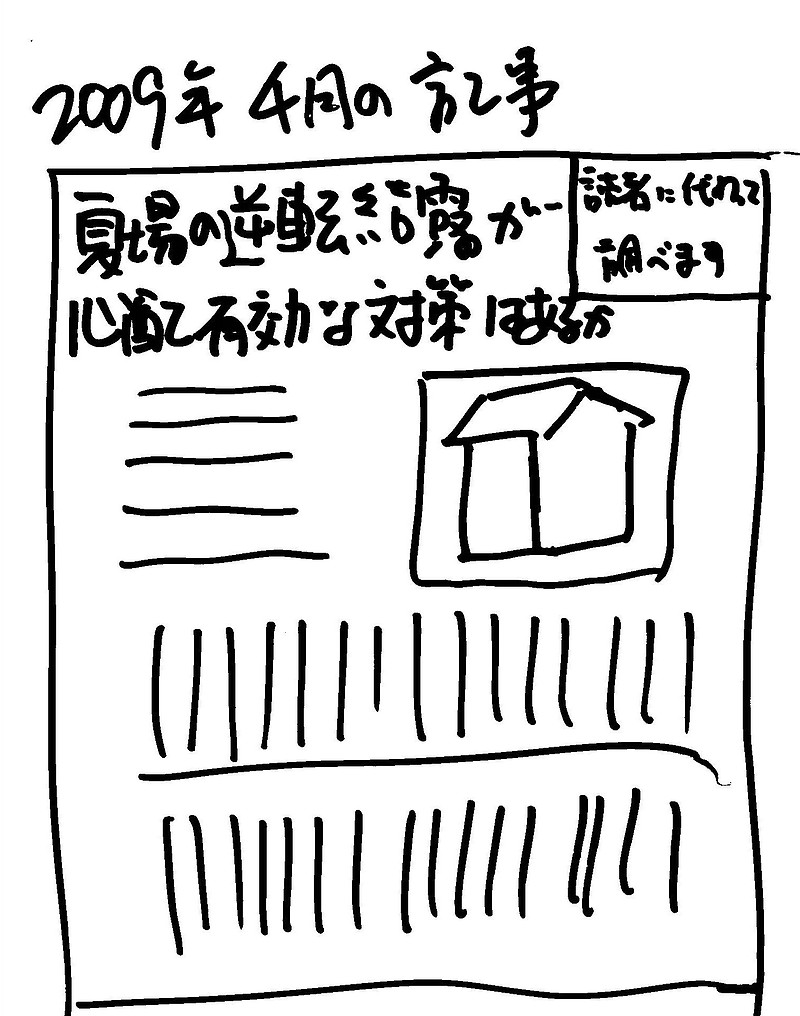 2009年4月の記事
夏場の逆転結露が
心配で有効な対策はあるか
読者に代わって
調べます